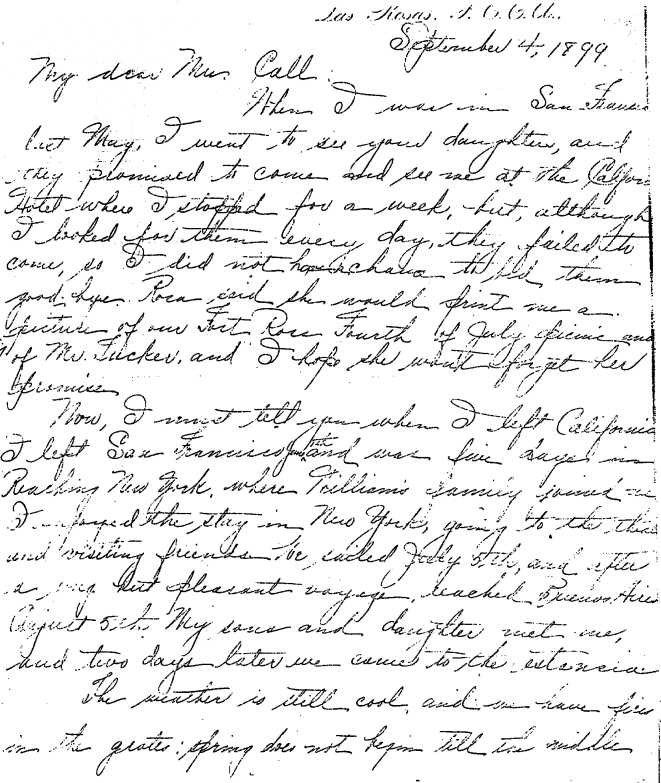 Las Rosas. F. C. C. A.
September 4, 1899
My dear Mrs. Call
When I was in San Francis
last May, I went to see your daughter, and
they promised to come and see me at the Califor
Hotel where I stopped for a week, but, although
I looked for them every day, they failed to
come, so I did not have chance to bid them
good bye. Rosa said she would print me a
picture of our Fort Ross Fourth of July picnic and
of Mr. Tucker, and I hope she won't forget her
promise.
Now, I must tell you when I left California
I left San Francisco and was five days in
Reaching New York, where William's family joined
I enjoyed the stay in New York, going to the thea
and visiting friends. We sailed July 5th, and after
a long but pleasant voyage, reached Buenos Aires
August 5th. My sons and daughter met me,
and two days later we came to the estancia
The weather is still cool, and we have fires
in the grates; spring does not begin till the middle